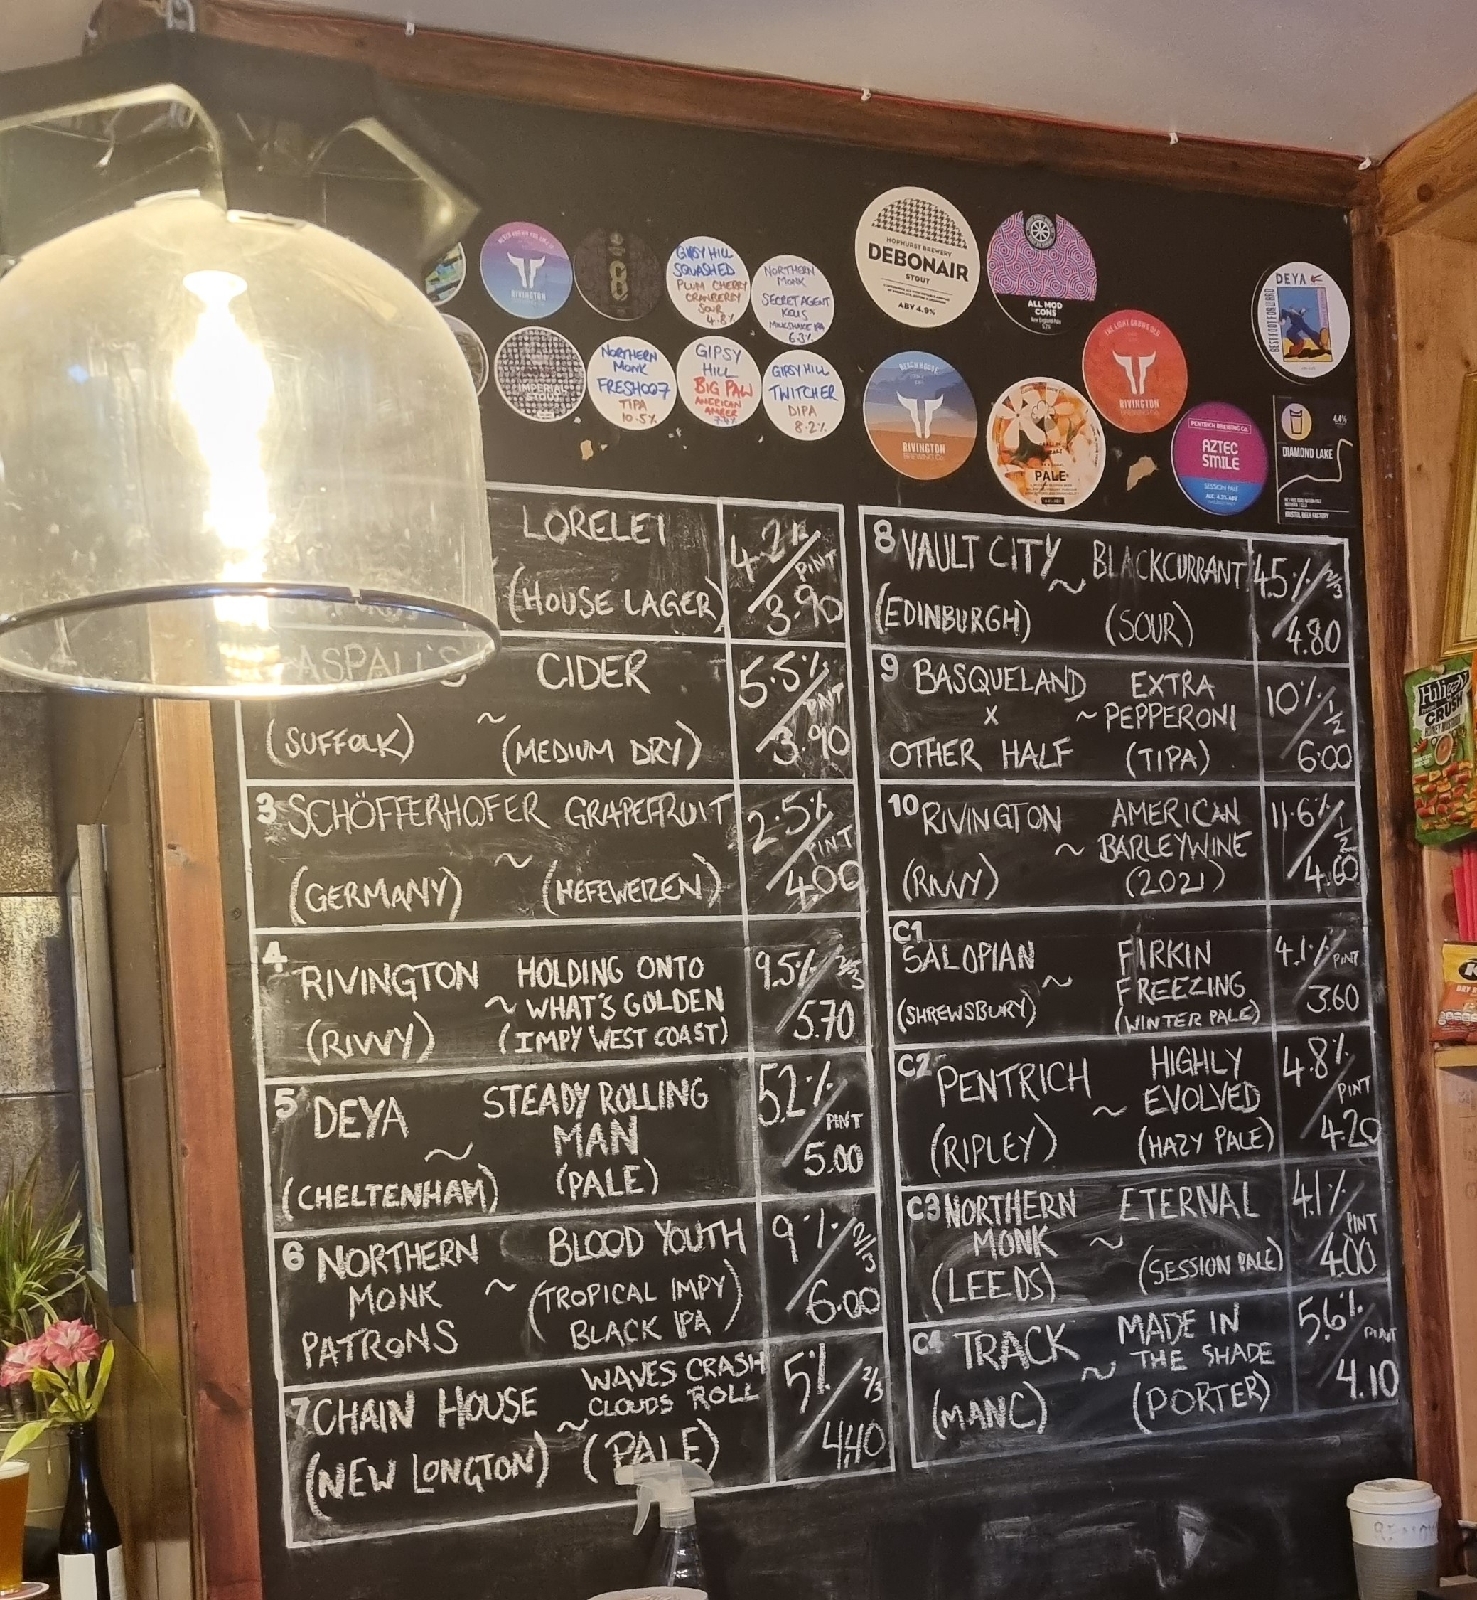 GIPSY HILL
SQUASHED
PLUM CHERRY
CRANBERRY
SOUR
4.8%
NORTHERN
MONK
SECRET AGENT
KEUS
MILKSHAKE IPA
6.3%
RIVINGTON
8
IMPERIAL
STOUT
NORTHERN
MONK
FRESH007
TIPA
10.5%
GIPSY
HILL
BIG PAW
AMERICAN
AMBER
GIPSY HILL
TWITCHER
DIPA
8.2%
HOPHURST BREWERY
DEBONAIR
STOUT
ABV 4.9%
ALL MOD
CONS
New England Pale
BEACH HOUSE
RIVINGTON
BREWING CO
PALE
THE LIGHT GROWS OLD
RIVINGTON
BREWING CO
PENTRICH BREWING CO.
AZTEC
SMILE
SESSION PALE
DEYA
BEST FOOT FORWARD
4.4%
DIAMOND LAKE
BRISTOL BEER FACTORY
LORELEI 4.2%/PINT
(HOUSE LAGER) 3.90
ASPALL'S CIDER 5.5%/PINT
(SUFFOLK) ~ (MEDIUM DRY) 3.90
3 SCHÖFFERHOFER GRAPEFRUIT 2.5%/PINT
~
(GERMANY) (HEFEWEIZEN) 4.00
4 RIVINGTON HOLDING ONTO 9.5%/2/3
~ WHAT'S GOLDEN
(RIVVY) (IMPY WEST COAST) 5.70
5 DEYA STEADY ROLLING 5.2%/PINT
MAN
~
(CHELTENHAM) (PALE) 5.00
6 NORTHERN BLOOD YOUTH 9%/2/3
MONK ~ (TROPICAL IMPY
PATRONS BLACK IPA) 6.00
7 CHAIN HOUSE WAVES CRASH 5%/2/3
~ CLOUDS ROLL
(NEW LONGTON) (PALE) 4.40
8 VAULT CITY ~ BLACKCURRANT 4.5%/2/3
(EDINBURGH) (SOUR) 4.80
9 BASQUELAND EXTRA 10%/1/2
X ~ PEPPERONI
OTHER HALF (TIPA) 6.00
10 RIVINGTON AMERICAN 11.6%/1/2
~ BARLEYWINE
(RIVVY) (2021) 4.60
C1
SALOPIAN ~ FIRKIN 4.1%/PINT
FREEZING
(SHREWSBURY) (WINTER PALE) 3.60
C2 PENTRICH HIGHLY 4.8%/PINT
~ EVOLVED
(RIPLEY) (HAZY PALE) 4.20
C3 NORTHERN ETERNAL 4.1%/PINT
MONK ~
(LEEDS) (SESSION PALE) 4.00
C4 TRACK MADE IN 5.6%/PINT
~ THE SHADE
(MANC) (PORTER) 4.10
CRUSH